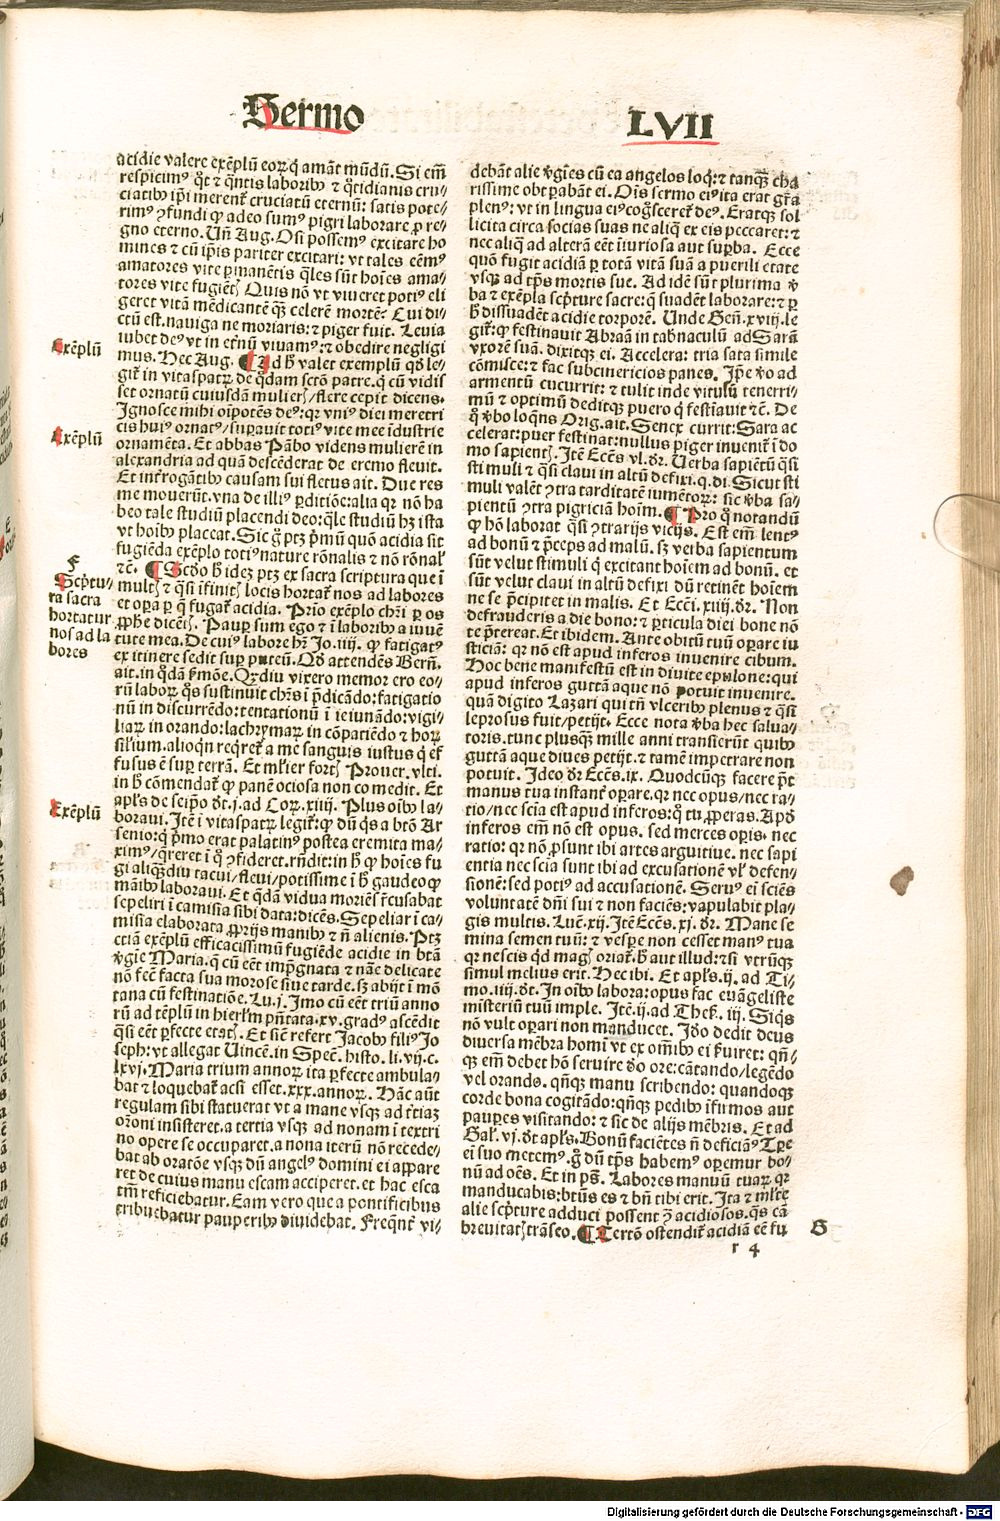 Sermo
LVII
acidie valere exēplū eorꝝ q amāt mūdū. Si em̄
respicimꝰ qͥt ⁊ qͣntis laboribꝰ ⁊ qͦtidianis cru⸗
ciatibꝰ ip̄i merent᷑ cruciatū eternū: satis pote⸗
rimꝰ ꝯfundi ꝙ adeo sumꝰ pigri laborare ꝓ re⸗
gno eterno. Un̄ Aug. Osi possemꝰ excitare ho
mines ⁊ cū ip̄is pariter excitari: vt tales eēmꝰ
amatores vite ꝑmanētis q̄les sūt hoīes ama⸗
tores vite fugiētꝭ. Quis nō vt viveret potiꝰ eli
geret vitā mēdicantē qꝫ celerē mortē? Cui di⸗
ctū est. naviga ne moriaris: ⁊ piger fuit. Levia
iubet deꝰ vt in et̄nū vivamꝰ: ⁊ obedire negligi
mus. Hec Aug. ¶ Ad h̄ valet exemplū qd̓ le⸗
git᷑ in vitaspatꝝ de qͦdam sct̄o patre. q cū vidis
set ornatū cuiusdā mulierꝭ/ flere cepit dicens.
Ignosce mihi oīpotēs deꝰ: qꝛ vniꝰ diei meretri
cis huiꝰ ornatꝰ/ suꝑavit totiꝰ vite mee īdustrie
ornamēta. Et abbas Pābo videns mulierē in
alexandria ad quā descēderat de eremo flevit.
Et int̓rogātibꝰ causam sui fletus ait. Due res
me moverūt. vna de illiꝰ ꝑditiōe: alia qꝛ nō ha
beo tale studiū placendi deo: q̄le studiū hꝫ ista
vt hoībꝰ placeat. Sic gͦ ptꝫ pͥmū quō acidia sit
fugiēda exēplo totiꝰ nature rōnalis ⁊ nō rōnaľ
⁊c̄. ¶ Scd̓o h̓ idez ptꝫ ex sacra scriptura que ī
multꝭ ⁊ qͣsi īfinitꝭ locis hortat᷑ nos ad labores
et oꝑa ꝑ q̄ fugat᷑ acidia. Prīo exēplo chr̄i ꝑ os
ꝓphe dicētꝭ. Pauꝑ sum ego ⁊ ī laboribꝰ a iuvē
tute mea. De cuiꝰ labore hr̄ Jo. iiij. ꝙ fatigatꝰ
ex itinere sedit suꝑ puteū. Qd̓ attendēs Bern̄.
ait. in qͦdā ẜmōe. Qͣdiu vixero memor ero eo⸗
rū laboꝝ qͦs sustinuit chr̄s ī p̄dicādo: fatigatio
nū in discurrēdo: tentationū ī ieiunādo: vigi⸗
liaꝝ in orando: lachrymaꝝ in cōpatiēdo ⁊ hoꝝ
siľium. alioqͥn reqͥret᷑ a me sanguis iustus q̄ ef
fusus ē suꝑ terrā. Et mľier fortꝭ Prover. vlti.
in h̄ cōmendat᷑ ꝙ panē ociosa non comedit. Et
apľs de seip̄o dt̄. j. ad Coꝝ. xiiij. Plus oībꝰ la⸗
boravi. Itē ī vitaspatꝝ legit᷑: ꝙ dū qͥs a btō Ar
senio: q pͥmo erat palatinꝰ postea eremita ma⸗
ximꝰ/ q̄reret ī qͦ ꝯfideret. rn̄dit: in h̄ ꝙ hoīes fu
gi aliqͣdiu tacui/ flevi/ potissime ī h̄ gaudeo ꝙ
māibꝰ laboravi. Et qͣdā vidua moriēs recusabat
sepeliri ī camisia sibi data: dicēs. Sepeliar ī ca⸗
misia elaborata ꝓprijs manibꝰ ⁊ n̄ alienis. Ptꝫ
etiā exēplū efficacissimū fugiēde acidie in btā
v̓gie Maria. q̄ cū eēt imp̄gnata ⁊ nāe delicate
nō fec̄ facta sua morose sive tarde. sꝫ abijt ī mō
tana cū festinatiōe. Lu. j. Imo cū eēt triū anno
rū ad tēplū in hierľm p̄ntata. xv. gradꝰ ascēdit
qͣsi eēt ꝑfecte etatꝭ. Et sic̄ refert Jacobꝰ filiꝰ Jo
seph: vt allegat Vincē. in Spec̄. histo. li. vij. c.
lxvj. Maria trium annoꝝ ita ꝑfecte ambula⸗
bat ⁊ loquebat᷑ acsi esset. xxx. annoꝝ. Hāc aūt
regulam sibi statuerat vt a mane vsqꝫ ad t̓tiaꝫ
or̄oni insisteret. a tertia vsqꝫ ad nonam ī textri
no opere se occuparet. a nona iterū nō recede⸗
bat ab oratōe vsqꝫ dū angelꝰ domini ei apꝑare
ret de cuius manu escam acciperet. et hac esca
tm̄ reficiebatur. Eam vero que a pontificibus
tribuebatur pauperibꝰ dividebat. Freqͣnt̓ vi⸗
Exēplū
Exēplū
F
Scp̄tu⸗
ra sacra
hortatur
nos ad la
bores
Exēplū
debāt alie v̓gīes cū ea angelos loq: ⁊ tanqꝫ cha
rissime obtꝑabāt ei. Oīs sermo eiꝰ ita erat gr̄a
plenꝰ: vt in lingua eiꝰ cogͦsceret᷑ deꝰ. Eratqꝫ sol
licita circa socias suas ne aliq̄ ex eis peccaret: ⁊
nec aliq̄ ad alterā eēt iuriosa aut suꝑba. Ecce
quō fugit acidiā ꝑ totā vitā suā a puerili etate
vsqꝫ ad tp̄s mortis sue. Ad idē sūt plurima v̓
ba ⁊ exēpla scp̄ture sacre: q̄ suadēt laborare: ⁊ ꝑ
h̄ dissuadēt acidie torporē. Unde Gen̄. xviij. le
git᷑: ꝙ festinavit Abraā in tabnaculū ad Sarā
vxorē suā. dixitqꝫ ei. Accelera: tria sata simile
cōmisce: ⁊ fac subcinericios panes. Ip̄e v̓o ad
armentū cucurrit: ⁊ tulit inde vitulū tenerri⸗
mū ⁊ optimū deditqꝫ puero q festīavit ⁊c̄. De
qͦ v̓bo loqͣns Orig. ait. Senex currit: Sara ac
celerat: puer festinat: nullus piger invenit᷑ ī do
mo sapientꝭ. Itē Eccēs vl. dr̄. Verba sapiētū qͣsi
stimuli ⁊ qͣsi clavi in altū defixi. q. di. Sicut sti
muli valēt ꝯtra tarditatē iumētoꝝ: sic v̓ba sa⸗
pientū ꝯtra pigriciā hoīm. ¶ Pro qͦ notandū
ꝙ hō laborat qͣsi ꝯtrarijs vicijs. Est em̄ lentꝰ
ad bonū ⁊ p̄ceps ad malū. sꝫ verba sapientum
sūt velut stimuli q̄ excitant hoīem ad bonū. et
sūt velut clavi in altū defixi dū retinēt hoīem
ne se p̄cipitet in malis. Et Eccī. xiiij. dr̄. Non
defrauderis a die bono: ⁊ ꝑticula diei bone nō
te p̄tereat. Et ibidem. Ante obitū tuū oꝑare iu
sticiā: qꝛ nō est apud inferos invenire cibum.
Hoc bene manifestū est in divite epulone: qui
apud inferos guttā aque nō potuit invenire.
quā digito Lazari qui tn̄ vlceribꝰ plenus ⁊ qͣsi
leprosus fuit/ petijt. Ecce nota v̓ba hec salva⸗
toris. tunc plusqꝫ mille anni transierūt quibꝰ
guttā aque dives petijt. ⁊ tamē impetrare non
potuit. Ideo dr̄ Eccēs. ix. Quodcūqꝫ facere pōt
manus tua instant̓ oꝑare. qꝛ nec opus/ nec ra⸗
tio/ nec sciā est apud inferos: qͦ tu ꝓperas. Apd̓
inferos em̄ nō est opus. sed merces operis. nec
ratio: qꝛ nō ꝓsunt ibi artes argutive. nec sapi
entia nec scia sunt ibi ad excusationē vľ defen⸗
sionē: sed potiꝰ ad accusationē. Servꝰ ei sciēs
voluntatē dn̄i sui ⁊ non faciēs: vapulabit pla⸗
gis multis. Luc̄. xij. Itē Eccēs. xj. dr̄. Mane se
mina semen tuū: ⁊ vesꝑe non cesset manꝰ tua
qꝛ nescis qͥd magꝭ oriat᷑. h̓ aut illud: ⁊ si vtrūqꝫ
simul melius erit. Hec ibi. Et apľs. ij. ad Ti⸗
mo. iiij. dt̄. In oībꝰ labora: opus fac evāgeliste
misteriū tuū imple. Itē. ij. ad Theſ. iij. Siqͥs
nō vult oꝑari non manducet. Id̓o dedit deus
diversa mēbra homī vt ex oīmbꝰ ei ẜviret: qn̄⸗
qꝫ em̄ debet hō servire d̓o ore: cātando/ legēdo
vel orando. qn̄qꝫ manu scribendo: quandoqꝫ
corde bona cogitādo: qn̄qꝫ pedibꝰ īfirmos aut
pauꝑes visitando: ⁊ sic de alijs mēbris. Et ad
Gaľ. vj. dt̄ apľs. Bonū faciētes n̄ deficiāꝰ. Tp̄e
ei suo metemꝰ. gͦ dū tp̄s habemꝰ oꝑemur bo⸗
nū ad oēs. Et in pͣs. Labores manuū tuaꝝ qꝛ
manducabis: bt̄us es ⁊ bn̄ tibi erit. Ita ⁊ mľte
alie scp̄ture adduci possent ꝯ̄ acidiosos. qͣs cā
brevitatꝭ trāseo. ¶ Tertō ostendit᷑ acidiā eē fu
G
r 4
Digitalisierung gefördert durch die Deutsche Forschungsgemeinschaft - DFG